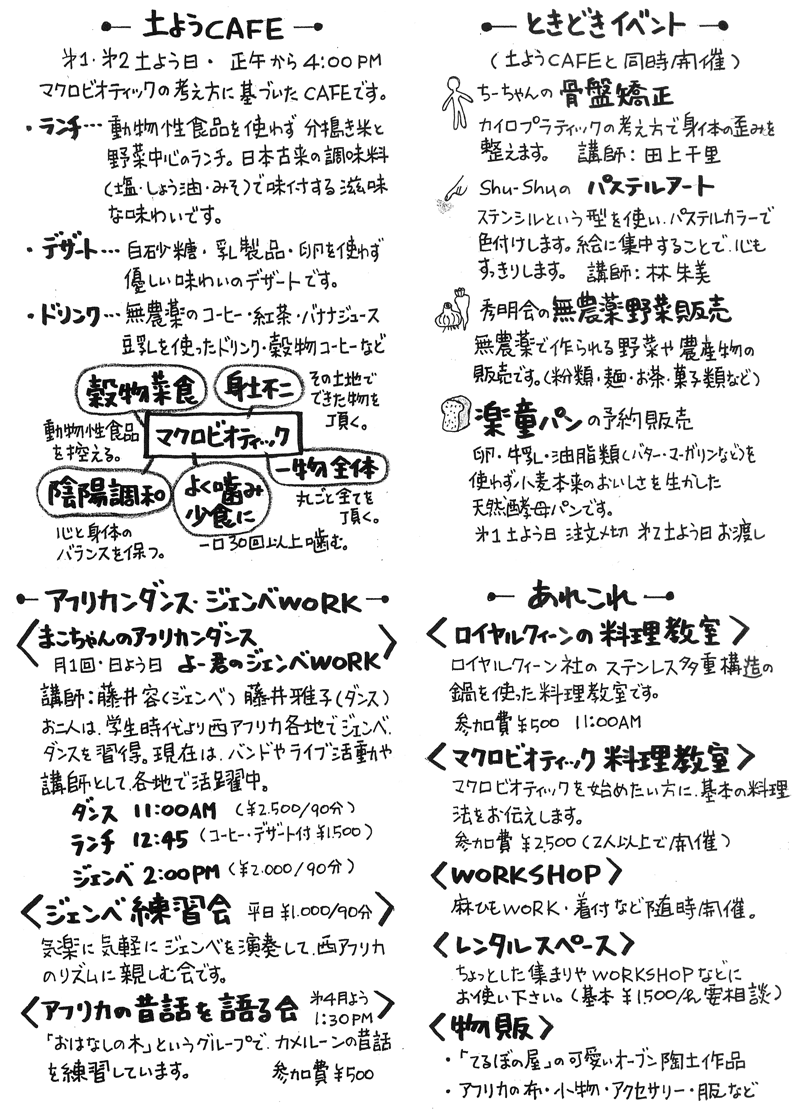 土ようCAFE
第1・第2土よう日・正午から4:00PM
マクロビオティックの考え方に基づいたCAFEです。
・ランチ…動物性食品を使わず分搗き米と
野菜中心のランチ。日本古来の調味料
(塩・しょう油・みそ)で味付する滋味
な味わいです。
・デザート…白砂糖・乳製品・卵を使わず
優しい味わいのデザートです。
・ドリンク…無農薬のコーヒー・紅茶・バナナジュース
豆乳を使ったドリンク・穀物コーヒーなど
穀物菜食
動物性食品
を控える。
身土不二
その土地で
できた物を
頂く。
マクロビオティック
陰陽調和
心と身体の
バランスを保つ。
よく噛み
少食に
一口30回以上噛む。
一物全体
丸ごと全てを
頂く。
アフリカンダンス・ジェンベWORK
〈まこちゃんのアフリカンダンス
月1回・日よう日 よー君のジェンベWORK〉
講師:藤井容(ジェンベ) 藤井雅子(ダンス)
お二人は、学生時代より西アフリカ各地でジェンベ、
ダンスを習得。現在は、バンドやライブ活動や
講師として、各地で活躍中。
ダンス 11:00AM (¥2.500/90分)
ランチ 12:45 (コーヒー・デザート付¥1.500)
ジェンベ 2:00PM (¥2.000/90分)
〈ジェンベ練習会 平日¥1.000/90分〉
気楽に気軽にジェンベを演奏して、西アフリカ
のリズムに親しむ会です。
〈アフリカの昔話を語る会 第4月よう 1:30PM〉
「おはなしの木」というグループで、カメルーンの昔話
を練習しています。 参加費¥500
ときどきイベント
(土ようCAFEと同時開催)
ちーちゃんの骨盤矯正
カイロプラティックの考え方で身体の歪みを
整えます。 講師:田上千里
Shu-Shuの パステルアート
ステンシルという型を使い、パステルカラーで
色付けします。絵に集中することで、心も
すっきりします。 講師:林朱美
秀明会の無農薬野菜販売
無農薬で作られる野菜や農産物の
販売です。(粉類・麺・お茶・菓子類など)
楽童パンの予約販売
卵・牛乳・油脂類(バター・マーガリンなど)を
使わず小麦本来のおいしさを生かした
天然酵母パンです。
第1土よう日 注文〆切 第2土よう日お渡し
あれこれ
〈ロイヤルクィーンの料理教室〉
ロイヤルクィーン社のステンレス多重構造の
鍋を使った料理教室です。
参加費¥500 11:00AM
〈マクロビオティック料理教室〉
マクロビオティックを始めたい方に、基本の料理
法をお伝えします。
参加費¥2,500(2人以上で開催)
〈WORKSHOP〉
麻ひもWORK・着付など随時開催。
〈レンタルスペース〉
ちょっとした集まりやWORKSHOPなどに
お使い下さい。(基本¥1500/h、要相談)
〈物販〉
・「てるぼの屋」の可愛いオーブン陶土作品
・アフリカの布・小物・アクセサリー・服など